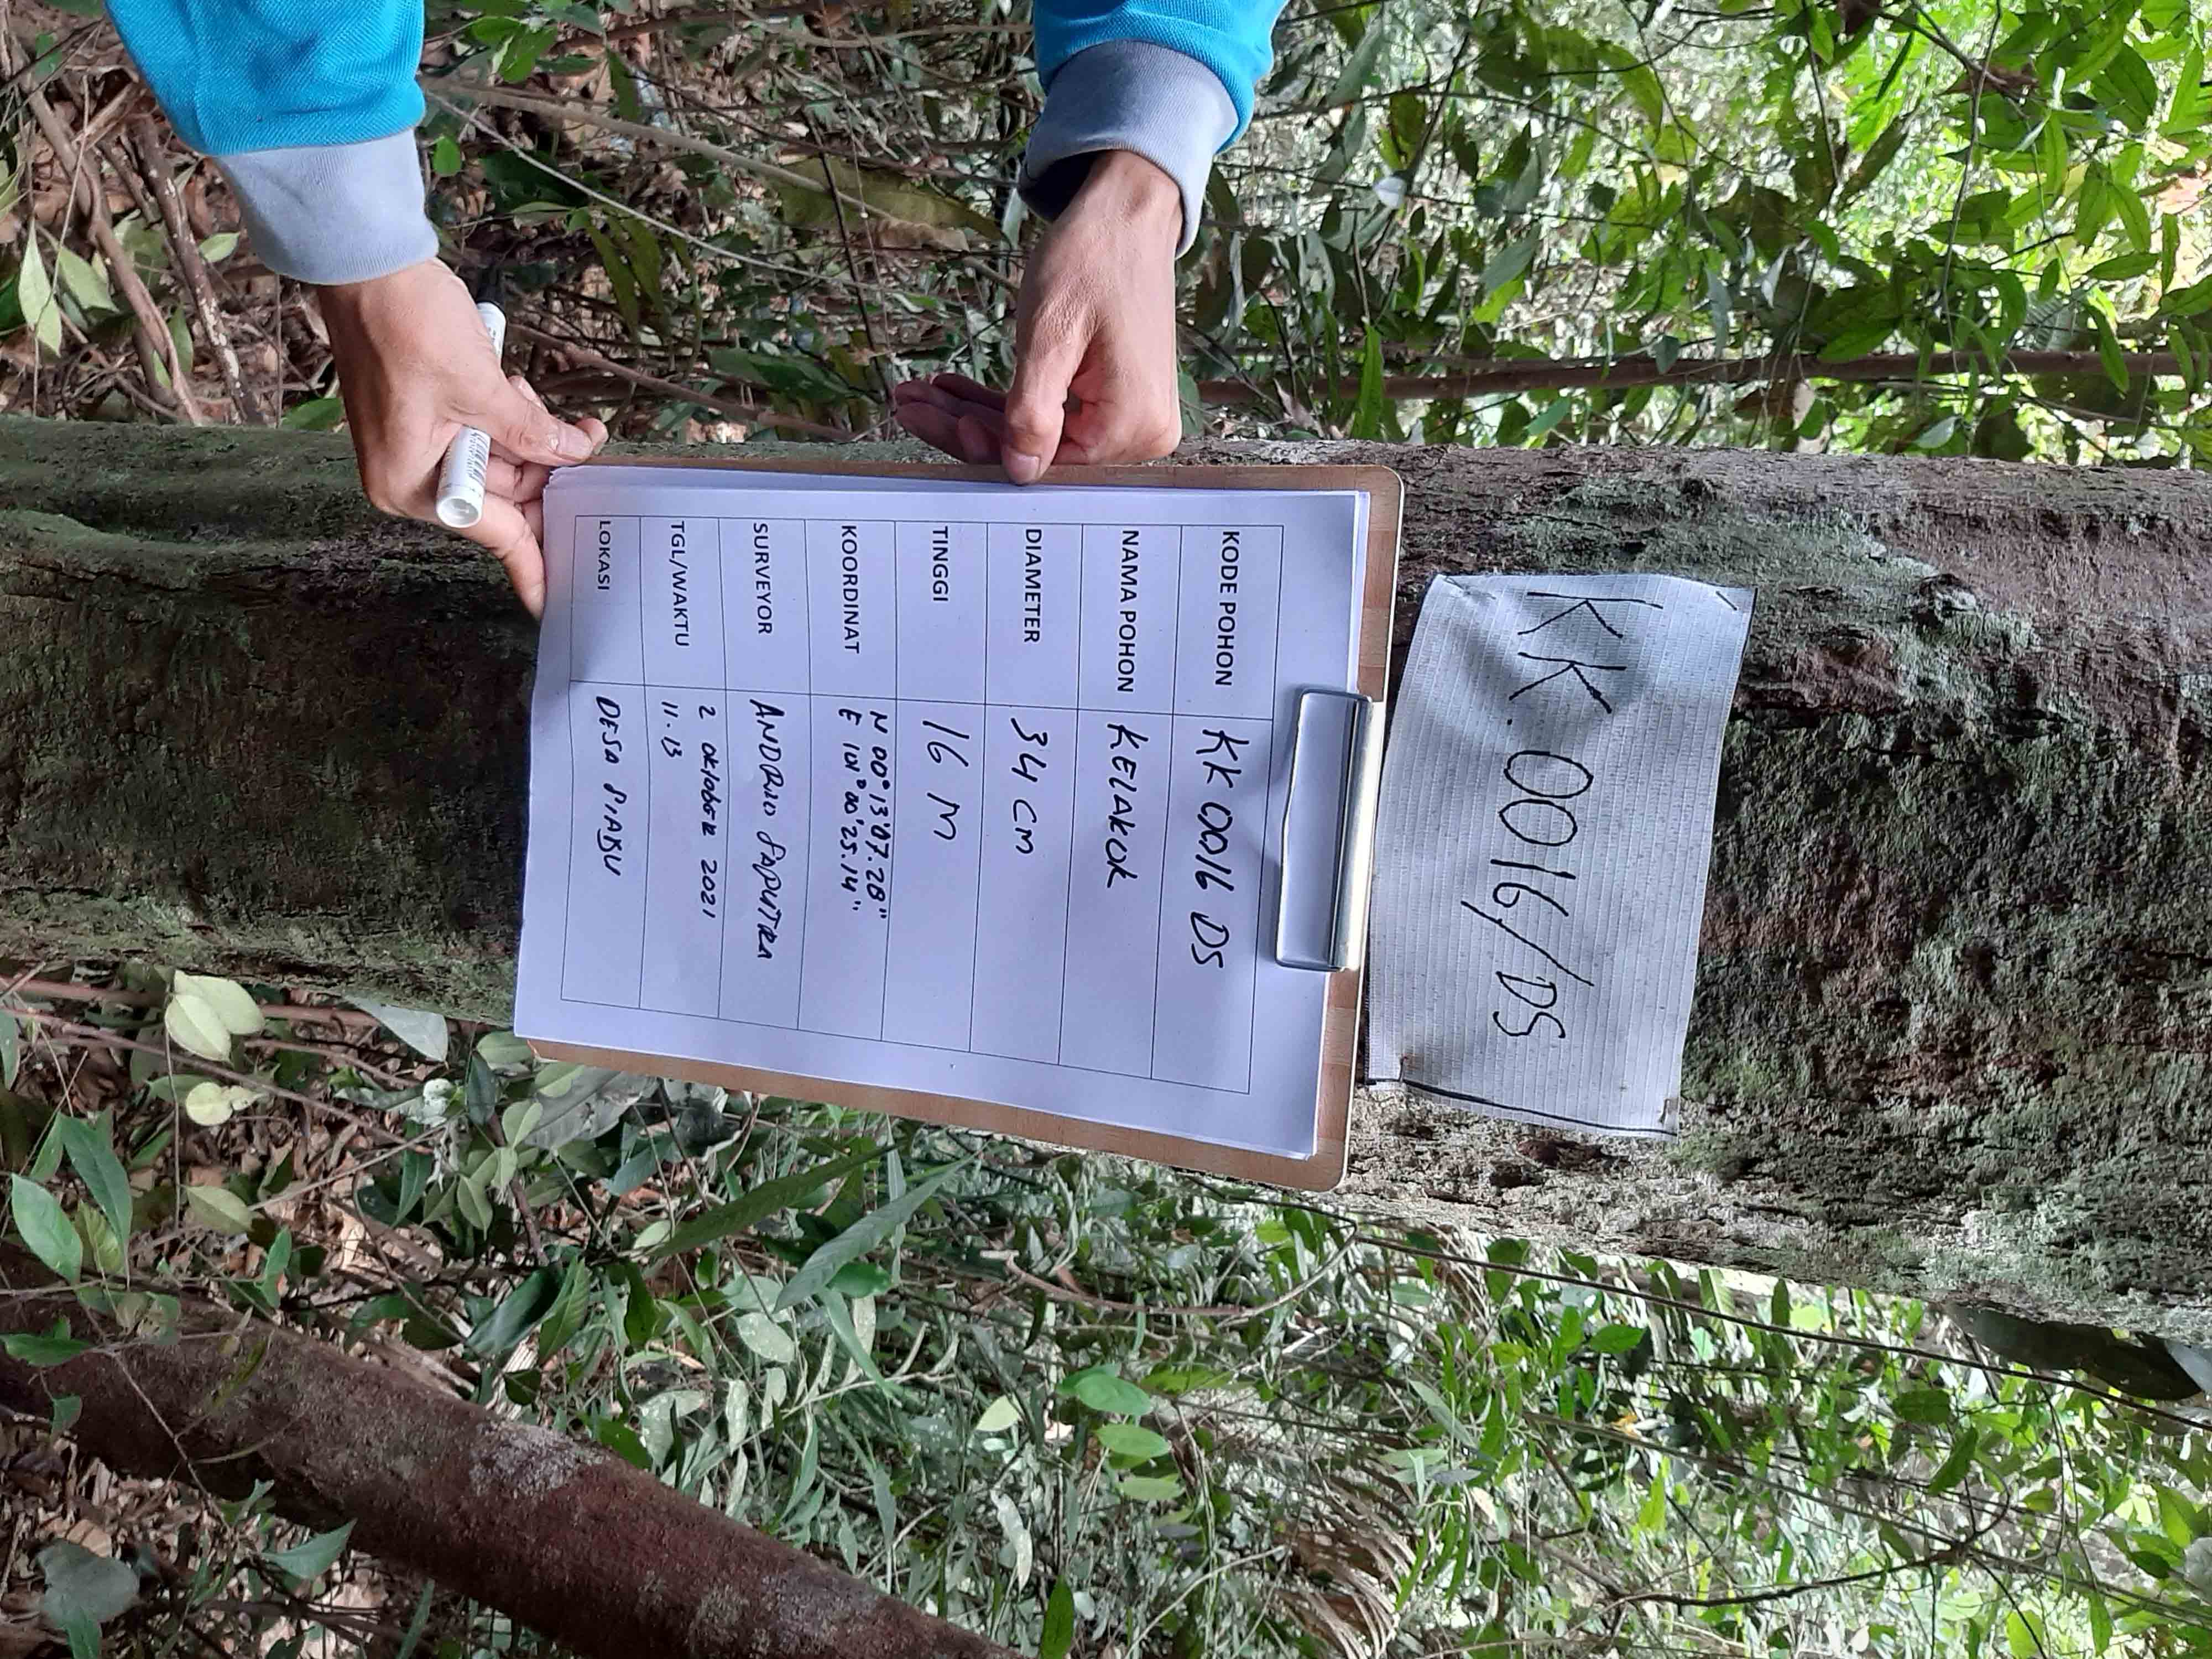 KK.0016/DS
KODE POHON KK 0016 DS
NAMA POHON KELAKOK
DIAMETER 34 CM
TINGGI 16 M
KOORDINAT N 00° 13'07.28"
E 101° 00'25.14"
SURVEYOR ANDRIO SAPUTRA
TGL/WAKTU 2 OKTOBER 2021
11.13
LOKASI DESA SIABU